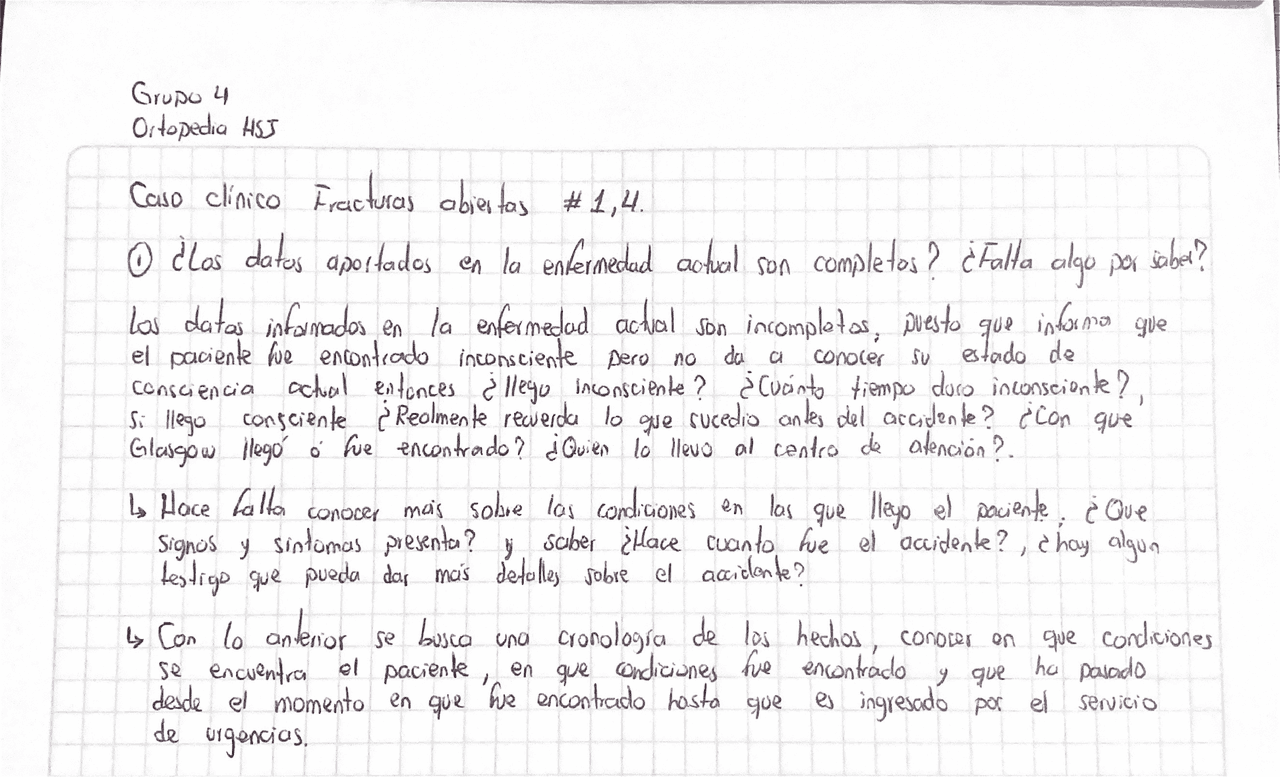 Grupo 4
Ortopedia HSJ
Caso clínico Fracturas abiertas # 1,4.
① ¿Los datos aportados en la enfermedad actual son completos? ¿Falta algo por saber?
Los datos informados en la enfermedad actual son incompletos, puesto que informa que
el paciente fue encontrado inconsciente pero no da a conocer su estado de
consciencia actual entonces ¿llego inconsciente? ¿Cuánto tiempo duro inconsciente?,
Si llego consciente ¿Realmente recuerda lo que sucedio antes del accidente? ¿Con que
Glasgow llegó ó fue encontrado? ¿Quien lo llevo al centro de atención?.
↳ Hace falta conocer más sobre las condiciones en las que llego el paciente. ¿Que
signos y síntomas presenta? y saber ¿Hace cuanto fue el accidente?, ¿hay algun
testigo que pueda dar más detalles sobre el accidente?
↳ Con lo anterior se busca una cronología de los hechos, conocer en que condiciones
se encuentra el paciente, en que condiciones fue encontrado y que ha pasado
desde el momento en que fue encontrado hasta que es ingresado por el servicio
de urgencias.